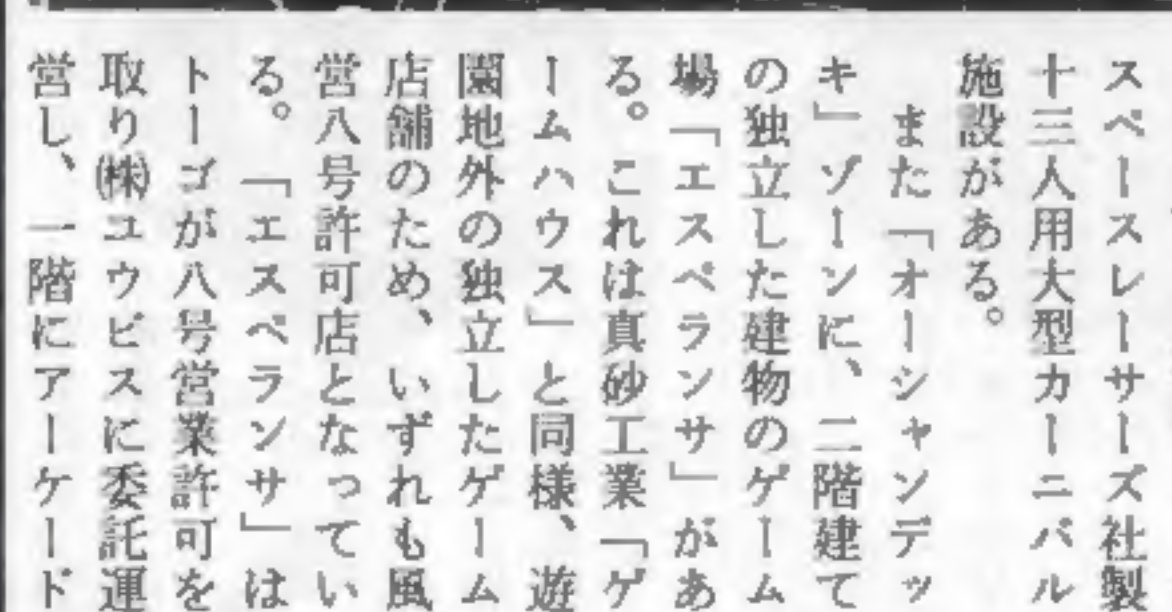 スペースレーサーズ社製
十三人用大型カーニバル
施設がある。
また「オーシャンデッ
キ」ゾーンに、二階建て
の独立した建物のゲーム
場「エスペランサ」があ
る。これは真砂工業「ゲ
ームハウス」と同様、遊
園地外の独立したゲーム
店舗のため、いずれも風
営八号許可店となってい
る。「エスペランサ」は
トーゴが八号営業許可を
取り㈱ユウビスに委託運
営し、一階にアーケード